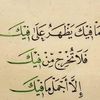 مَافِيكَ يَظْهَرُ عَلَى فِيكَ
فَلَا تُخْرِجْ مِنْ فِيكَ
إِلَّا أَجْمَلَ مَا فِيكَ